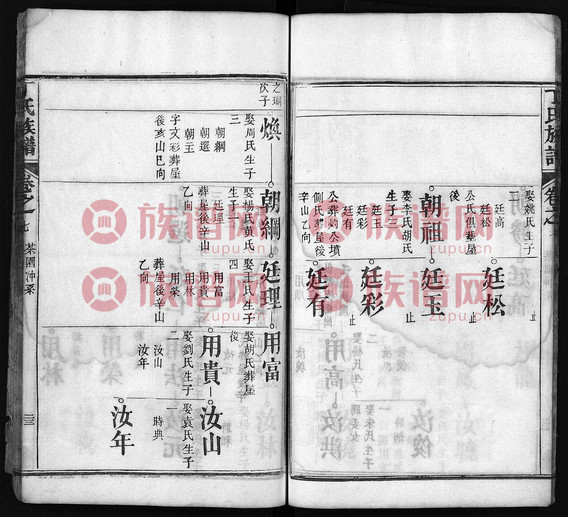 丁氏族譜
卷之
廷松
止
娶姚氏生子
二
廷高
廷松
公氏俱葬屋
後
朝祖
廷玉
止
娶李氏胡氏
生子三
廷玉
廷彩
廷有
廷彩
止
廷有
止
辛山乙向
之瑚
次子
煥
朝綱
廷理
用富
娶周氏生子
三
朝綱
朝選
朝玉
字文彩葬屋
後亥山巳向
娶楊氏黃氏
生子一
廷理
葬屋後辛山
乙向
娶丁氏生子
四
用富
用貴
用林
用榮
葬屋後辛山
乙向
娶胡氏葬屋
後
用貴
汝山
娶劉氏生子
二
汝山
汝年
娶袁氏生子
一
時典
汝年
氏族譜
卷之七
茶園沖系
族谱网
zupu.cn
族谱网
zupu.cn
族谱网
zupu.cn
族谱网
zupu.cn